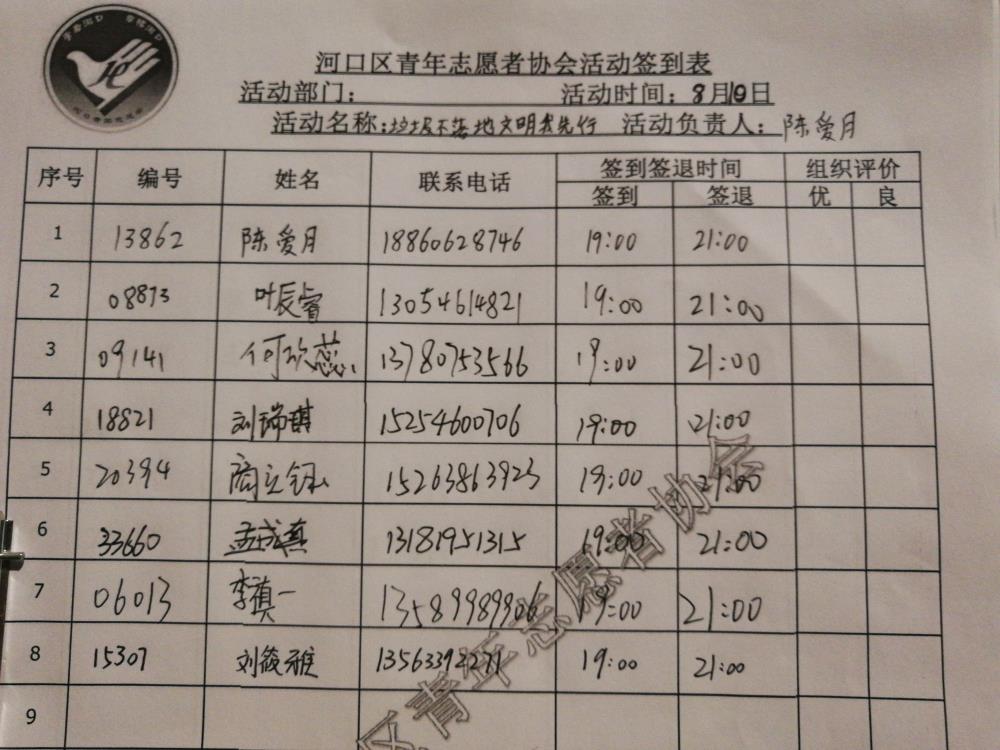 河口区青年志愿者协会活动签到表
活动部门： 活动时间：8月10日
活动名称：垃圾不落地文明我先行 活动负责人：陈爱月
序号 编号 姓名 联系电话 签到签退时间 组织评价
签到 签退 优 良
1 13862 陈爱月 18860628746 19:00 21:00
2 08873 叶辰睿 13054614821 19:00 21:00
3 09141 何欣蕊 13780753566 19:00 21:00
4 18821 刘瑞琪 15254600706 19:00 21:00
5 20394 商立钰 15263863923 19:00 21:00
6 33660 孟成真 13181951315 19:00 21:00
7 06013 李真一 13589989906 19:00 21:00
8 15307 刘筱雅 13563392271 19:00 21:00
9
区青年志愿者协会